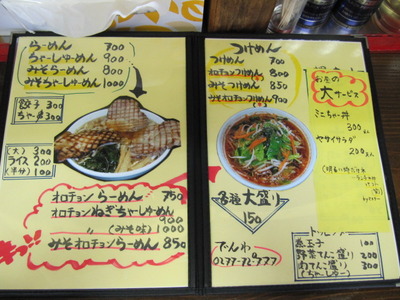 らーめん 700
ちゃーしゅーめん 900
みそらーめん 800
みそちゃーしゅーめん 1000
餃子 300
ちゃ皿 300
(大) 300
ライス 200
(半分) 100
オロチョンらーめん 750
オロチョンねぎちゃーしゅーめん 900
〃 (みそ味) 1000
みそオロチョンらーめん 850
つけめん
つけめん 700
オロチョンつけめん 800
みそつけめん 850
みそオロチョンつけめん 900
各種大盛り
150
でんわ
お昼の
大サービス
ミニちゃー丼
300えん
ヤサイサラダ
200えん
トッピング
煮玉子 100
野菜てんこ盛り 200
肉てんこ盛り 300
(ちゃーしゅー)